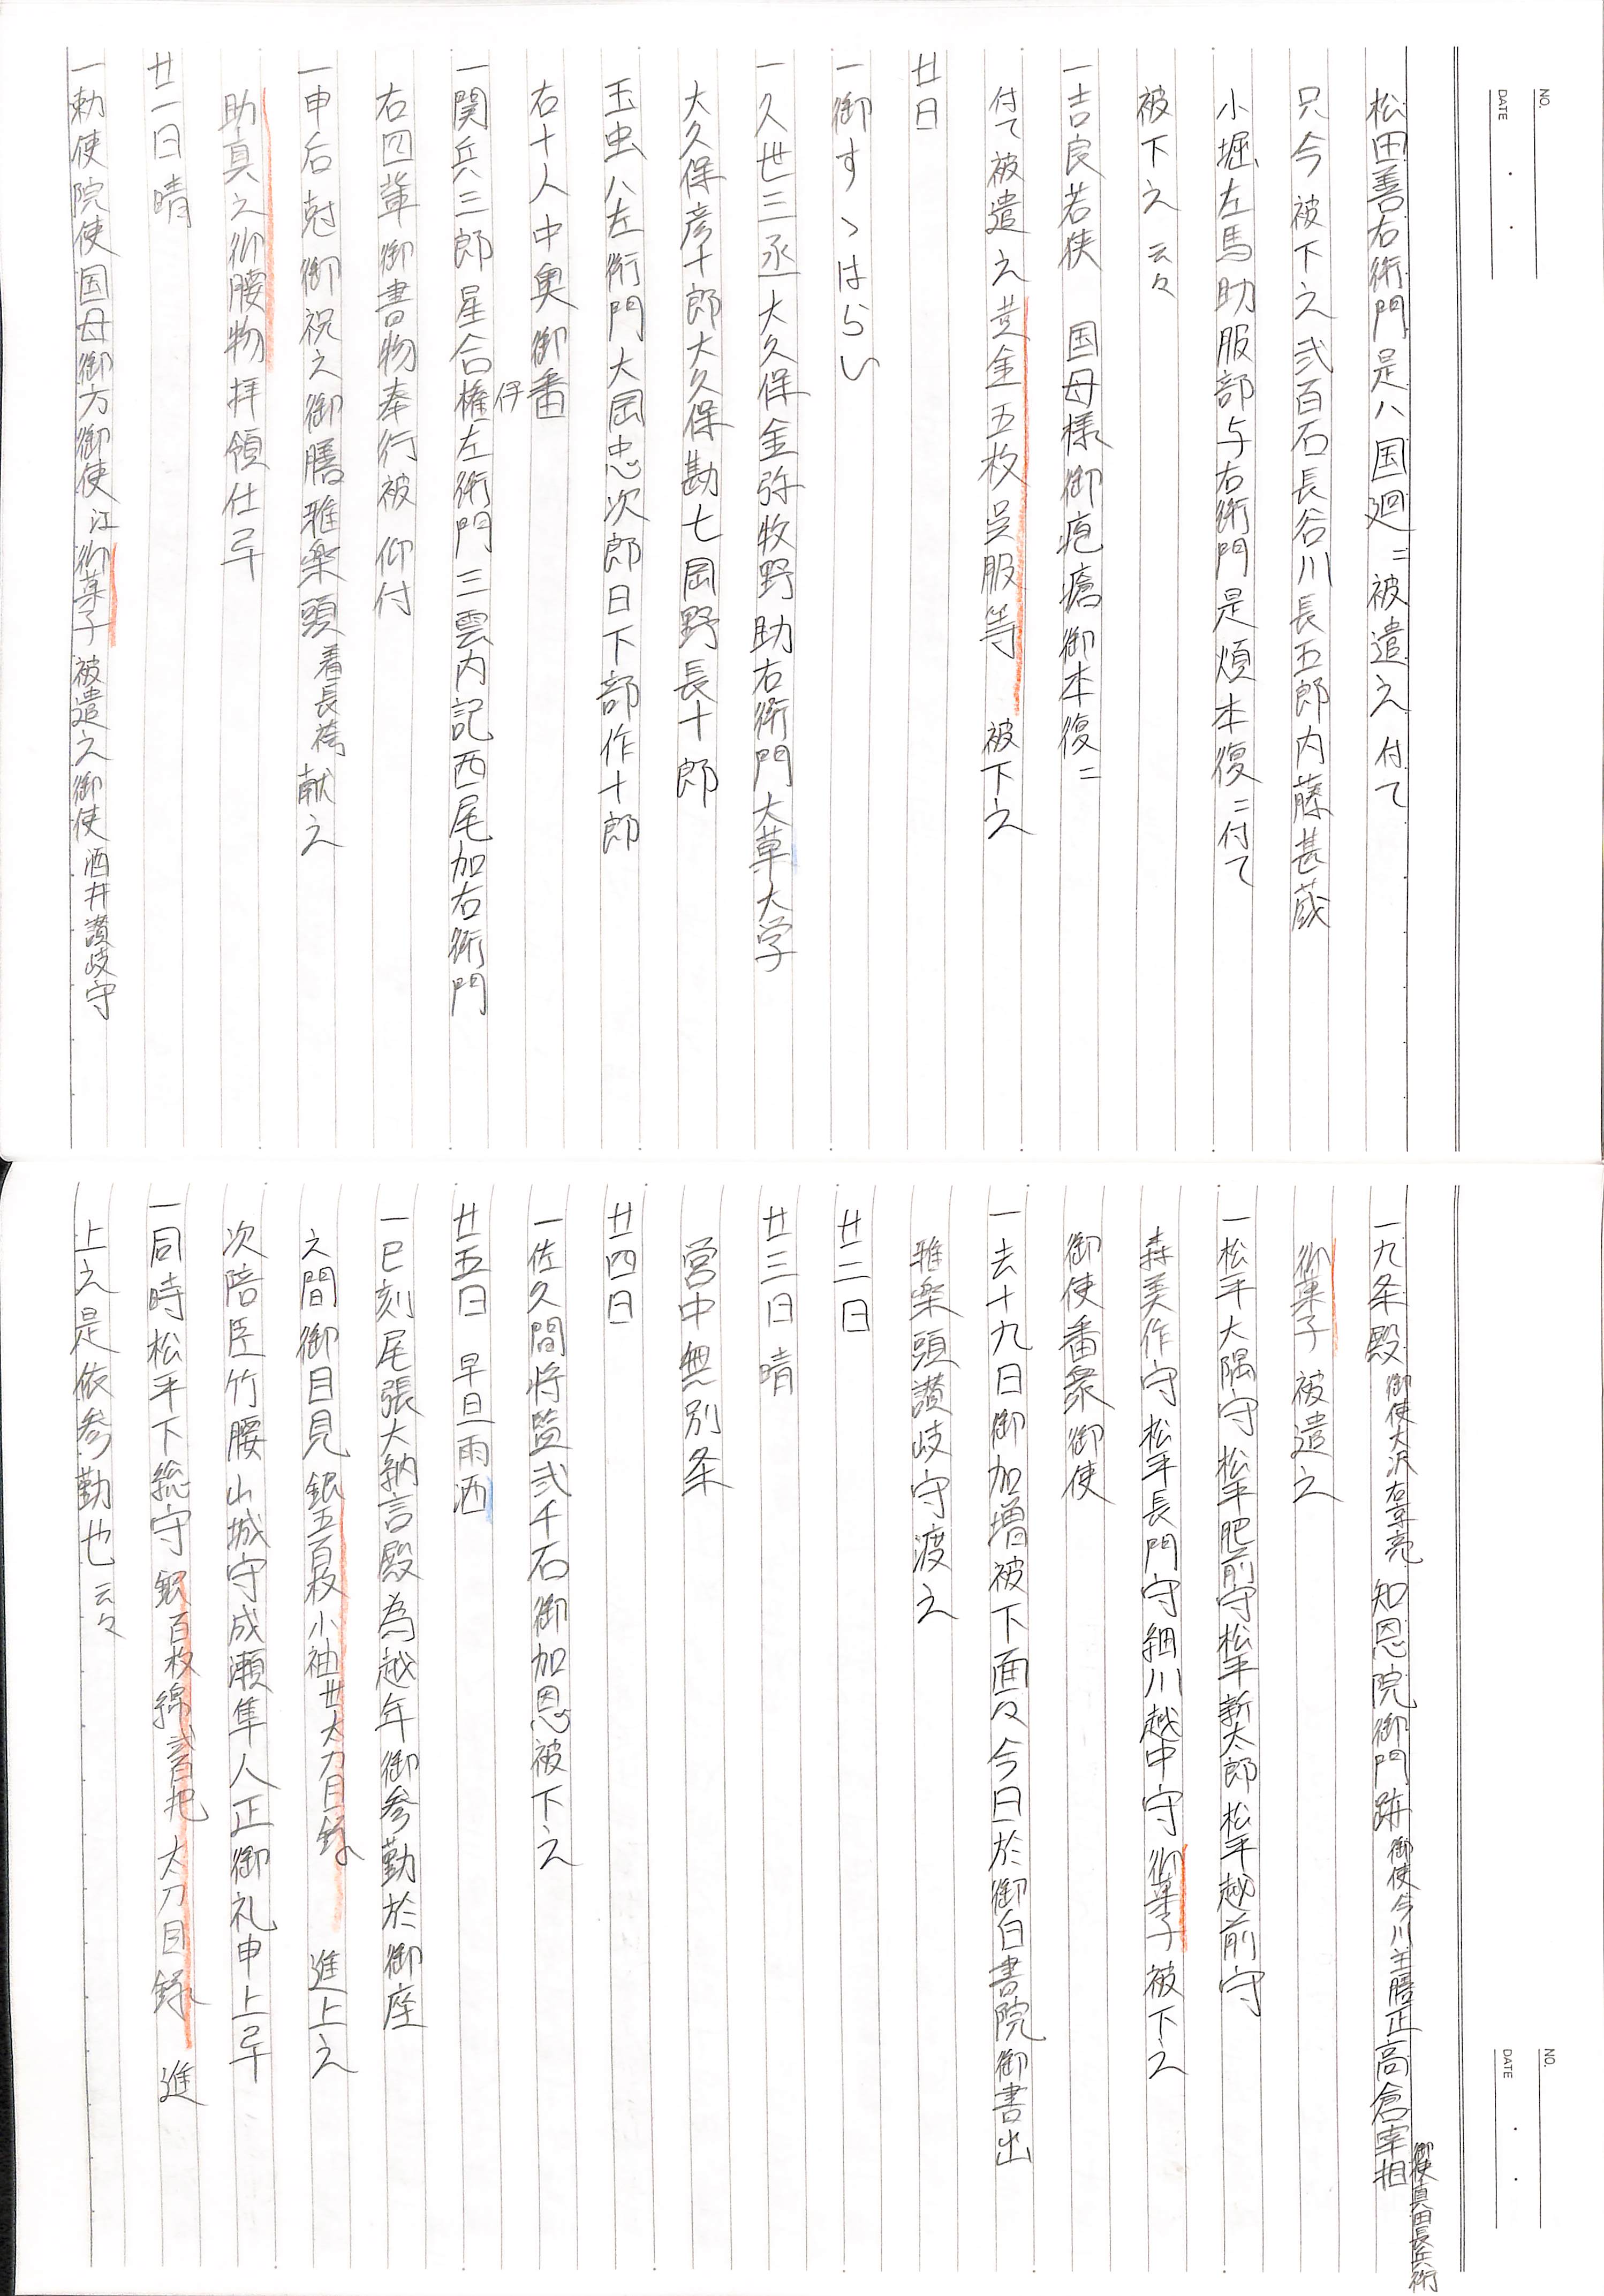 NO.
DATE
松田善右衛門是ハ国廻ニ被遣之付て
只今被下之弐百石長谷川長五郎内藤甚蔵
小堀左馬助服部与右衛門是煩本復ニ付て
被下之云々
一吉良若狭 国母様御疱瘡御本復ニ
付て被遣之黄金五枚呉服等 被下之
廿日
一御すゝはらい
一久世三丞大久保金弥牧野助右衛門大草大学
大久保彦十郎大久保勘七岡野長十郎
玉虫八左衛門大岡忠次郎日下部作十郎
右十人中奥御番
一関兵三郎星合権左衛門三雲内記西尾加右衛門
伜
右四輩御書物奉行被仰付
一申后尅御祝之御膳雅楽頭着長袴献之
助真之御腰物拝領仕早
廿一日晴
一勅使院使国母御方御使江御菓子被遣之御使酒井讃岐守
NO.
DATE
一九条殿御使大沢右京亮知恩院御門跡御使今川主膳正高倉宰相御使真田長兵衛
御菓子被遣之
一松平大隅守松平肥前守松平新太郎松平越前守
森美作守松平長門守細川越中守御菓子被下之
御使番衆御使
一去十九日御加増被下面々今日於御白書院御書出
雅楽頭讃岐守渡之
廿二日
廿三日晴
宮中無別条
廿四日
一佐久間将監弐千石御加恩被下之
廿五日 早旦雨洒
一巳刻尾張大納言殿為越年御参勤於御座
之間御目見銀五百枚小袖廿太刀目録 進上之
次陪臣竹腰山城守成瀬隼人正御礼申上早
一同時松平下総守銀百枚綿弐百把太刀目録 進
上之是依参勤也云々